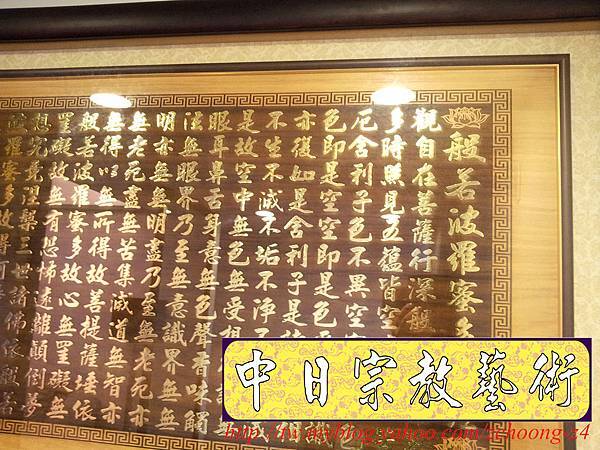 般若波羅蜜多
觀自在菩薩行深般
多時照見五蘊皆空
厄舍利子色不異空
色即是空空即是色
亦復如是舍利子是
不生不滅不垢不淨不
是故空中無色無受想
眼耳鼻舌身意無色聲香味觸
法無眼界乃至無意識界無無
明亦無無明盡乃至無老死亦
無老死盡無苦集滅道無智亦
無得以無所得故菩提薩埵依
般若波羅蜜多故心無罣礙無
罣礙故無有恐怖遠離顛倒夢
想究竟涅槃三世諸佛依般若
羅蜜多故得阿
中日宗教藝術
http://tw.myblog.yahoo.com/zchoong-z4